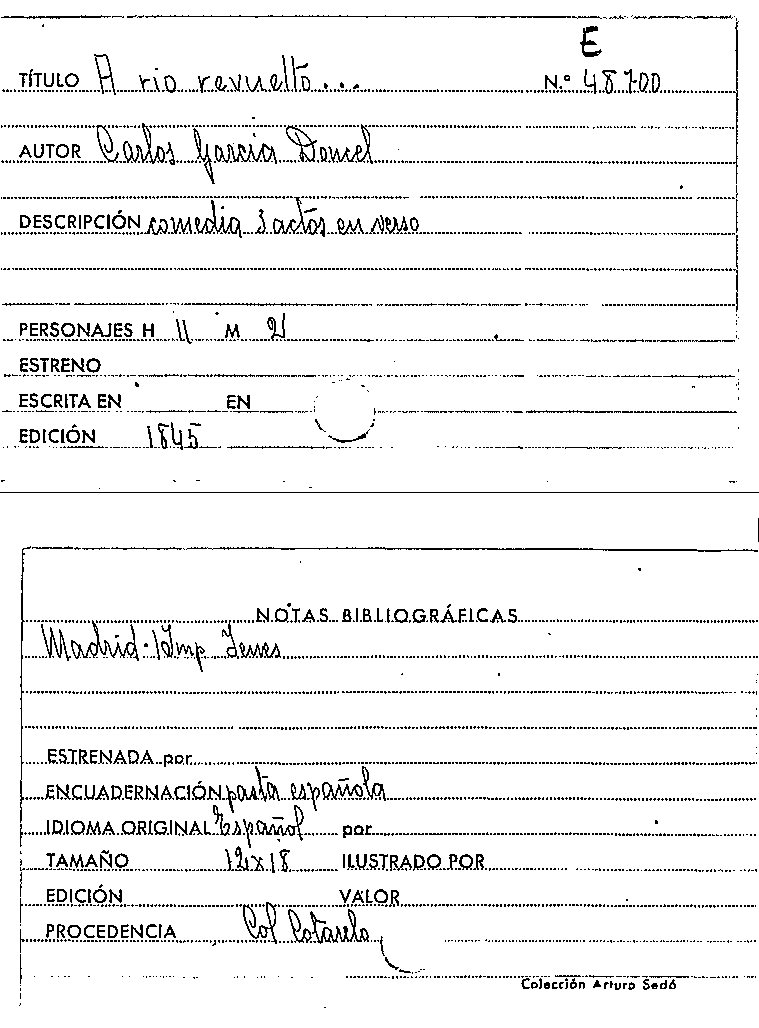 E
TÍTULO A rio revuelto... N.º 48700
AUTOR Carlos Garcia Doncel
DESCRIPCIÓN comedia 3 actos en verso
PERSONAJES H 11 M 2
ESTRENO
ESCRITA EN EN
EDICIÓN 1845
NOTAS BIBLIOGRÁFICAS
Madrid - Imp Yenes
ESTRENADA por
ENCUADERNACIÓN pasta española
IDIOMA ORIGINAL Español por
TAMAÑO 12x18 ILUSTRADO POR
EDICIÓN VALOR
PROCEDENCIA Col Cotarelo
Colección Arturo Sedó